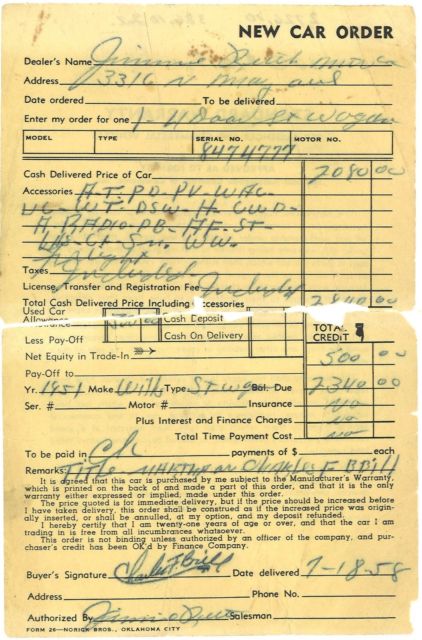 NEW CAR ORDER
Dealer's Name Jimmie
Address 3316 N May ave
Date ordered To be delivered
Enter my order for one 1- 4 Door St Wagon
MODEL TYPE SERIAL NO. MOTOR NO.
8474777
Cash Delivered Price of Car 2080 00
Accessories A-T-PD-PV-WAC-
UC-WT-DSW-H-CWD-
A RADIO-PB-AF-ST-
WW.
Taxes Included
License, Transfer and Registration Fee Included
Total Cash Delivered Price Including Accessories 2840 00
Used Car Allowance 500 00 Cash Deposit TOTAL CREDIT
Less Pay-Off Cash On Delivery
Net Equity in Trade-In 500 00
Pay-Off to
Yr. 1951 Make Type St wgn Bal. Due 2340 00
Ser. # Motor # Insurance no
Plus Interest and Finance Charges no
Total Time Payment Cost no
To be paid in payments of $ each
Remarks: Title Martha or Charles F Brill
It is agreed that this car is purchased by me subject to the Manufacturer's Warranty,
which is printed on the back of and made a part of this order, and that it is the only
warranty either expressed or implied, made under this order.
The price quoted is for immediate delivery, but if the price should be increased before
I have taken delivery, this order shall be construed as if the increased price was origin-
ally inserted, or shall be annulled, at my option, and my deposit refunded.
I hereby certify that I am twenty-one years of age or over, and that the car I am
trading in is free from all incumbrances whatsoever.
This order is not binding unless authorized by an officer of the company, and pur-
chaser's credit has been OK'd by Finance Company.
Buyer's Signature Charles F Brill Date delivered 7-18-58
Address Phone No.
Authorized By Jimmie Salesman
FORM 26—NORICK BROS., OKLAHOMA CITY